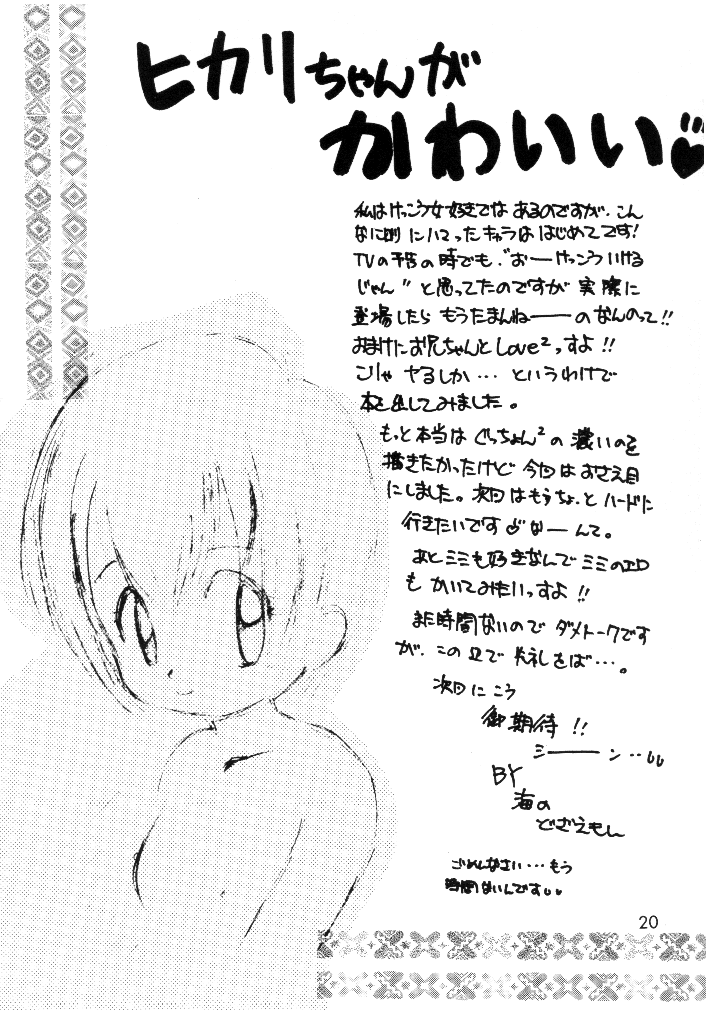 ヒカリちゃんが
かわいい♡
私はけっこう女好きではあるのですが、こん
なに むし にハマったキャラははじめてです!
TVの予告の時でも、"おーけっこういける
じゃん"と思ってたのですが実際に
登場したらもうたまんねーーのなんのって!!
おまけにお兄ちゃんとLove²っすよ!!
こりゃやるしか…というわけで
本を出してみました。
もっと本当はぐっちょん²の濃いのを
描きたかったけど今回はおさえ目
にしました。次回はもうちょっとハードに
行きたいです♡なーんて。
あとミミも好きなんでミミのエロ
もかいてみたいっすよ!!
まだ時間ないのでダメトークです
が、この辺で失礼をば…。
次回にこう
御期待!!
シーーン‥
BY
海の
どざえもん
ごめんなさい…もう
時間ないんです
20